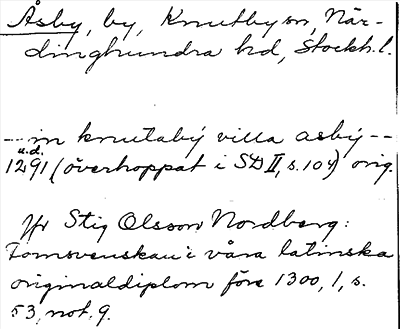 Åsby, by, Knutby sn, När-
dinghundra hd, Stockh. l.
--- in knutaby villa asby ---
u.d.
1291 (överhoppat i SD II, s. 104) orig.
Jfr Stig Olsson Nordberg:
Fornsvenskan i våra latinska
originaldiplom före 1300, 1, s.
53, not. 9.